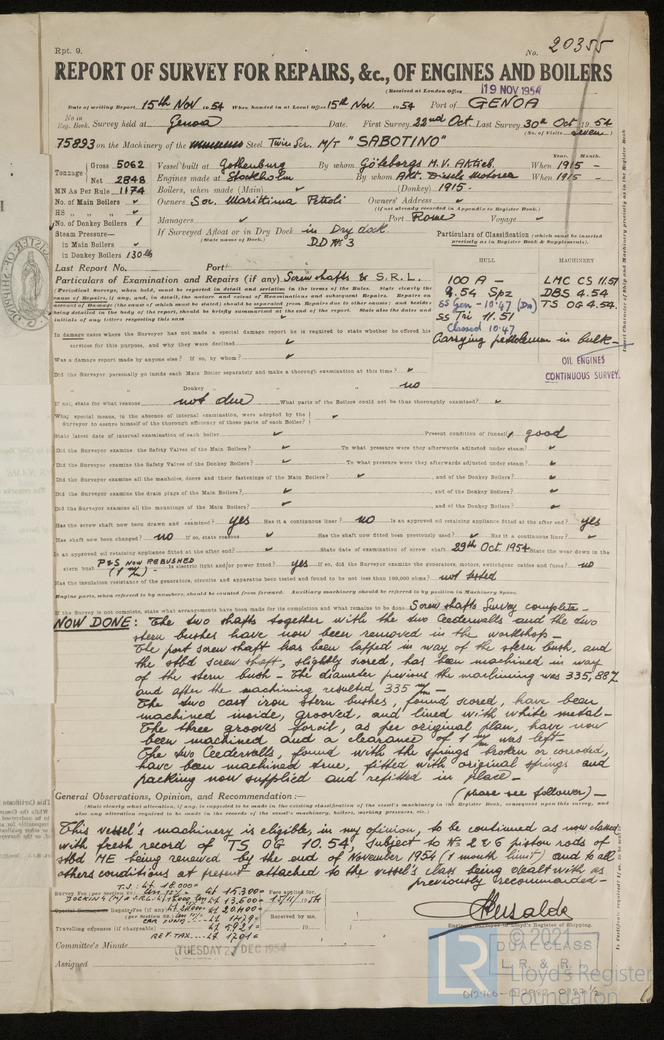 Rpt. 9. No. 20355
REPORT OF SURVEY FOR REPAIRS, &c., OF ENGINES AND BOILERS
(Received at London Office 19 NOV 1954
Date of writing Report 15th Nov 1954 When handed in at Local Office 15th Nov. 1954 Port of GENOA
No in Reg. Book. Survey held at Genoa Date. First Survey 22nd Oct. Last Survey 30th Oct 1954
(No. of Visits seven)
75893 on the Machinery of the Steel Twin Scr. M/T "SABOTINO"
Tonnage Gross 5062 Vessel built at Gothenburg By whom Göteborgs M.V. Aktieb. When 1915 -
Net 2848 Engines made at Stockholm By whom Akt. Diesels Motorer When 1915 -
MN As Per Rule 1174 Boilers, when made (Main) (Donkey) 1915 -
No. of Main Boilers Owners Soc. Marittima Petroli Owners' Address
(if not already recorded in Appendix to Register Book.)
No. of Donkey Boilers 1 Managers Port Rome Voyage
Steam Pressure— in Main Boilers If Surveyed Afloat or in Dry Dock in Dry dock
(State name of Dock.) DD No 3
in Donkey Boilers 130 lb
Particulars of Classification (which must be inserted precisely as in Register Book & Supplements).
HULL MACHINERY
Last Report No. Port
Particulars of Examination and Repairs (if any) Screwshafts & S.R.L.
100 A - LMC CS 11.51
9.54 Spz DBS 4.54
SS Gen - 10.47 (Dn) TS OG 4.54
SS Tri 11.51
Classed 10.47
Carrying petroleum in bulk -
OIL ENGINES
CONTINUOUS SURVEY.
In damage cases where the Surveyor has not made a special damage report he is required to state whether he offered his
services for this purpose, and why they were declined
Was a damage report made by anyone else? If so, by whom?
Did the Surveyor personally go inside each Main Boiler separately and make a thorough examination at this time?
" " Donkey " " no
If not, state for what reasons not due What parts of the Boilers could not be thus thoroughly examined?
What special means, in the absence of internal examination, were adopted by the
Surveyor to assure himself of the thorough efficiency of those parts of each Boiler?
State latest date of internal examination of each boiler Present condition of funnel good
Did the Surveyor examine the Safety Valves of the Main Boilers? To what pressure were they afterwards adjusted under steam?
Did the Surveyor examine the Safety Valves of the Donkey Boilers? To what pressure were they afterwards adjusted under steam?
Did the Surveyor examine all the manholes, doors and their fastenings of the Main Boilers? and of the Donkey Boilers?
Did the Surveyor examine the drain plugs of the Main Boilers? and of the Donkey Boilers?
Did the Surveyor examine all the mountings of the Main Boilers? and of the Donkey Boilers?
Has the screw shaft now been drawn and examined? yes Has it a continuous liner? no Is an approved oil retaining appliance fitted at the after end? yes
Has shaft now been changed? no If so, state reasons Has the shaft now fitted been previously used? Has it a continuous liner?
Is an approved oil retaining appliance fitted at the after end? State date of examination of screw shaft 29th Oct. 1954 State the wear down in the
stern bush P&S NOW REBUSHED (1 m/m) - Is electric light and/or power fitted? yes If so, did the Surveyor examine the generators, motors, switchgear cables and fuses? no
Has the insulation resistance of the generators, circuits and apparatus been tested and found to be not less than 100,000 ohms? not tested
Engine parts, when referred to by numbers, should be counted from forward. Auxiliary machinery should be referred to by position in Machinery Space.
If the Survey is not complete, state what arrangements have been made for its completion and what remains to be done Screw shafts Survey complete -
NOW DONE: The two shafts together with the two Cederwalls and the two
stern bushes have now been removed in the workshop -
The port screw shaft has been lapped in way of the stern bush, and
the stbd screw shaft, slightly scored, has been machined in way
of the stern bush - The diameter previous the machining was 335,887
and after the machining resulted 335 m/m -
The two cast iron stern bushes, found scored, have been
machined inside, grooved, and lined with white metal -
The three grooves for oil, as per original plan, have now
been machined and a clearance of 1 m/m was left -
The two Cederwalls, found with the springs broken or corroded,
have been machined true, fitted with original springs and
packing now supplied and refitted in place -
(please see follower) -
General Observations, Opinion, and Recommendation:—
(State clearly what alteration, if any, is suggested to be made in the existing classification of the vessel's machinery in the Register Book, consequent upon this survey, and
also any alteration required to be made in the records of the vessel's machinery, boilers, working pressures, etc.)
This vessel's machinery is eligible, in my opinion, to be continued as now classed
with fresh record of TS OG 10.54, subject to Nos 2 & 6 piston rods of
stbd ME being renewed by the end of November 1954 (1 month limit) and to all
others conditions at present attached to the vessel's class being dealt with as
previously recommended -
Travelling expenses (if chargeable)
Received by me,
Committee's Minute TUESDAY 21 DEC 1954
Assigned
Engineer Surveyor to Lloyd's Register of Shipping.
DUAL CLASS
L.R. & R.I.
© 2021
Lloyd's Register
Foundation